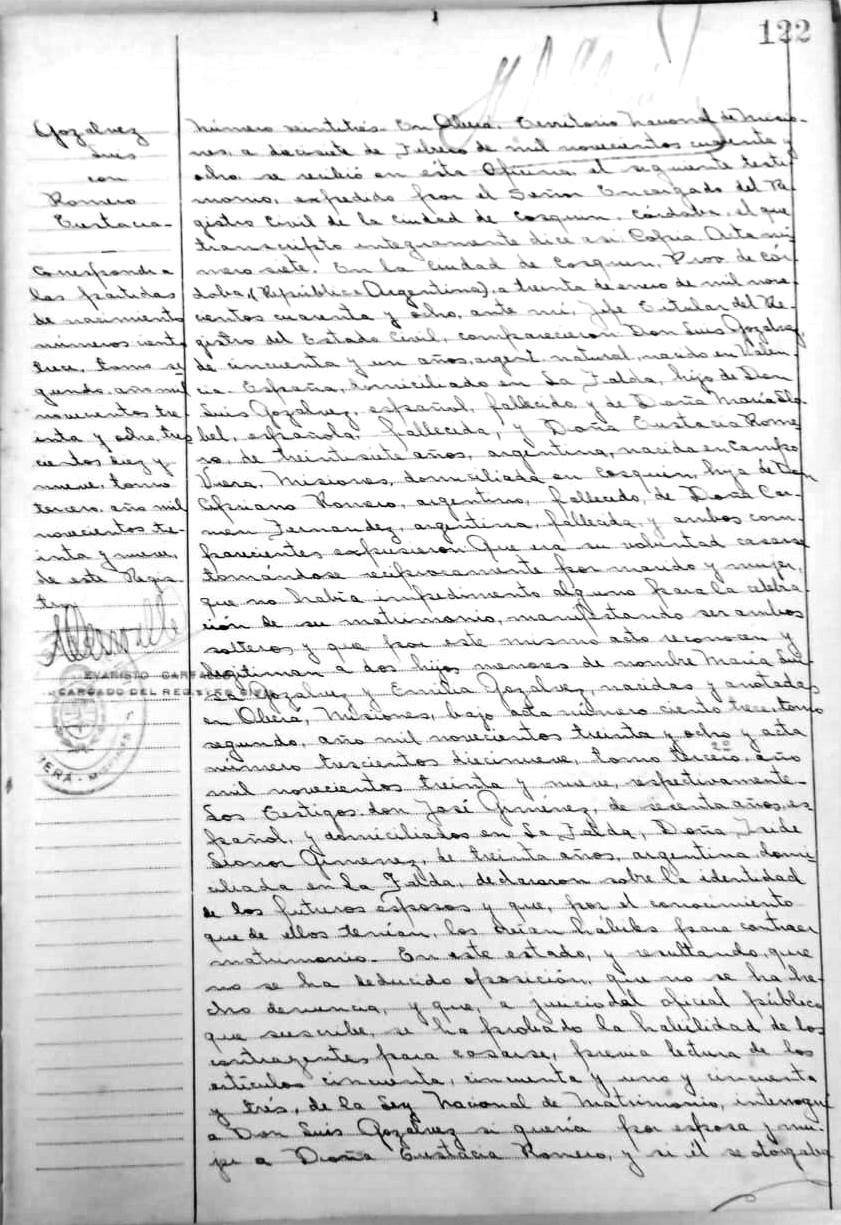 122
Gozalvez
Luis
con
Romero
Eustacia-
Corresponde a
las partidas
de nacimiento
números ciento
trece, tomo se
gundo, año mil
novecientos tre-
inta y ocho, tres
cientos diez y
nueve, tomo
tercero, año mil
novecientos tre-
inta y nueve,
de este Regis-
tro
EVARISTO
CARGADO DEL REGISTRO CIVIL
Número veintitrés- En Oberá, Territorio Nacional de Misio-
nes, a diecisiete de Febrero de mil novecientos cuarenta y
ocho, se recibió en esta Oficina, el siguiente testi-
monio, expedido por el Señor Encargado del Re-
gistro Civil de la ciudad de Cosquin, Córdoba, el que
transcripto integramente dice asi: Copia Acta nú-
mero siete. En la Ciudad de Cosquin, Prov. de Cór-
doba, (República Argentina), a treinta de enero de mil nove-
cientos cuarenta y ocho, ante mi, Jefe Titular del Re-
gistro del Estado Civil, comparecieron Don Luis Gozalvez,
de cincuenta y un años, argent. natural, nacido en Valen-
cia España, domiciliado en La Falda, hijo de Don
Luis Gozalvez, español, fallecido, y de Doña María
bel, española, fallecida, y Doña Eustacia Rome-
ro, de treintisiete años, argentina, nacida en Campo
Viera, Misiones, domiciliada en Cosquin, hija de Don
Cipriano Romero, argentino, fallecido, de Doña Car-
men Fernandez, argentina, fallecida, y ambos com-
parecientes expusieron: Que era su voluntad casarse
tomándose reciprocamente por marido y mujer,
que no había impedimento alguno para la celebra-
ción de su matrimonio, manifestando ser ambos
solteros y que por este mismo acto reconocen y
legitiman a dos hijos menores de nombre María Lui-
sa Gozalvez y Emilia Gozalvez, nacidas y anotadas
en Oberá, Misiones, bajo acta número ciento trece tomo
segundo, año mil novecientos treinta y ocho y acta
número trescientos diecinueve, tomo tercero, año
mil novecientos treinta y nueve, respectivamente-
Los testigos: don José Giménez, de sesenta años, es-
pañol, y domiciliados en La Falda, Doña
Leonor Gimenez, de treinta años, argentina, domi-
ciliada en La Falda, declararon sobre la identidad
de los futuros esposos y que, por el conocimiento
que de ellos tenían, los creían hábiles para contraer
matrimonio- En este estado, y resultando, que
no se ha deducido oposición, que no se ha he-
cho denuncia, y que, a juicio del oficial público
que suscribe, se ha probado la habilidad de los
contrayentes para casarse, previa lectura de los
artículos cincuenta, cincuenta y uno y cincuenta
y trés, de la Ley Nacional de Matrimonio, interrogué
a Don Luis Gozalvez si quería por esposa y mu-
jer a Doña Eustacia Romero, y si él se otorgaba